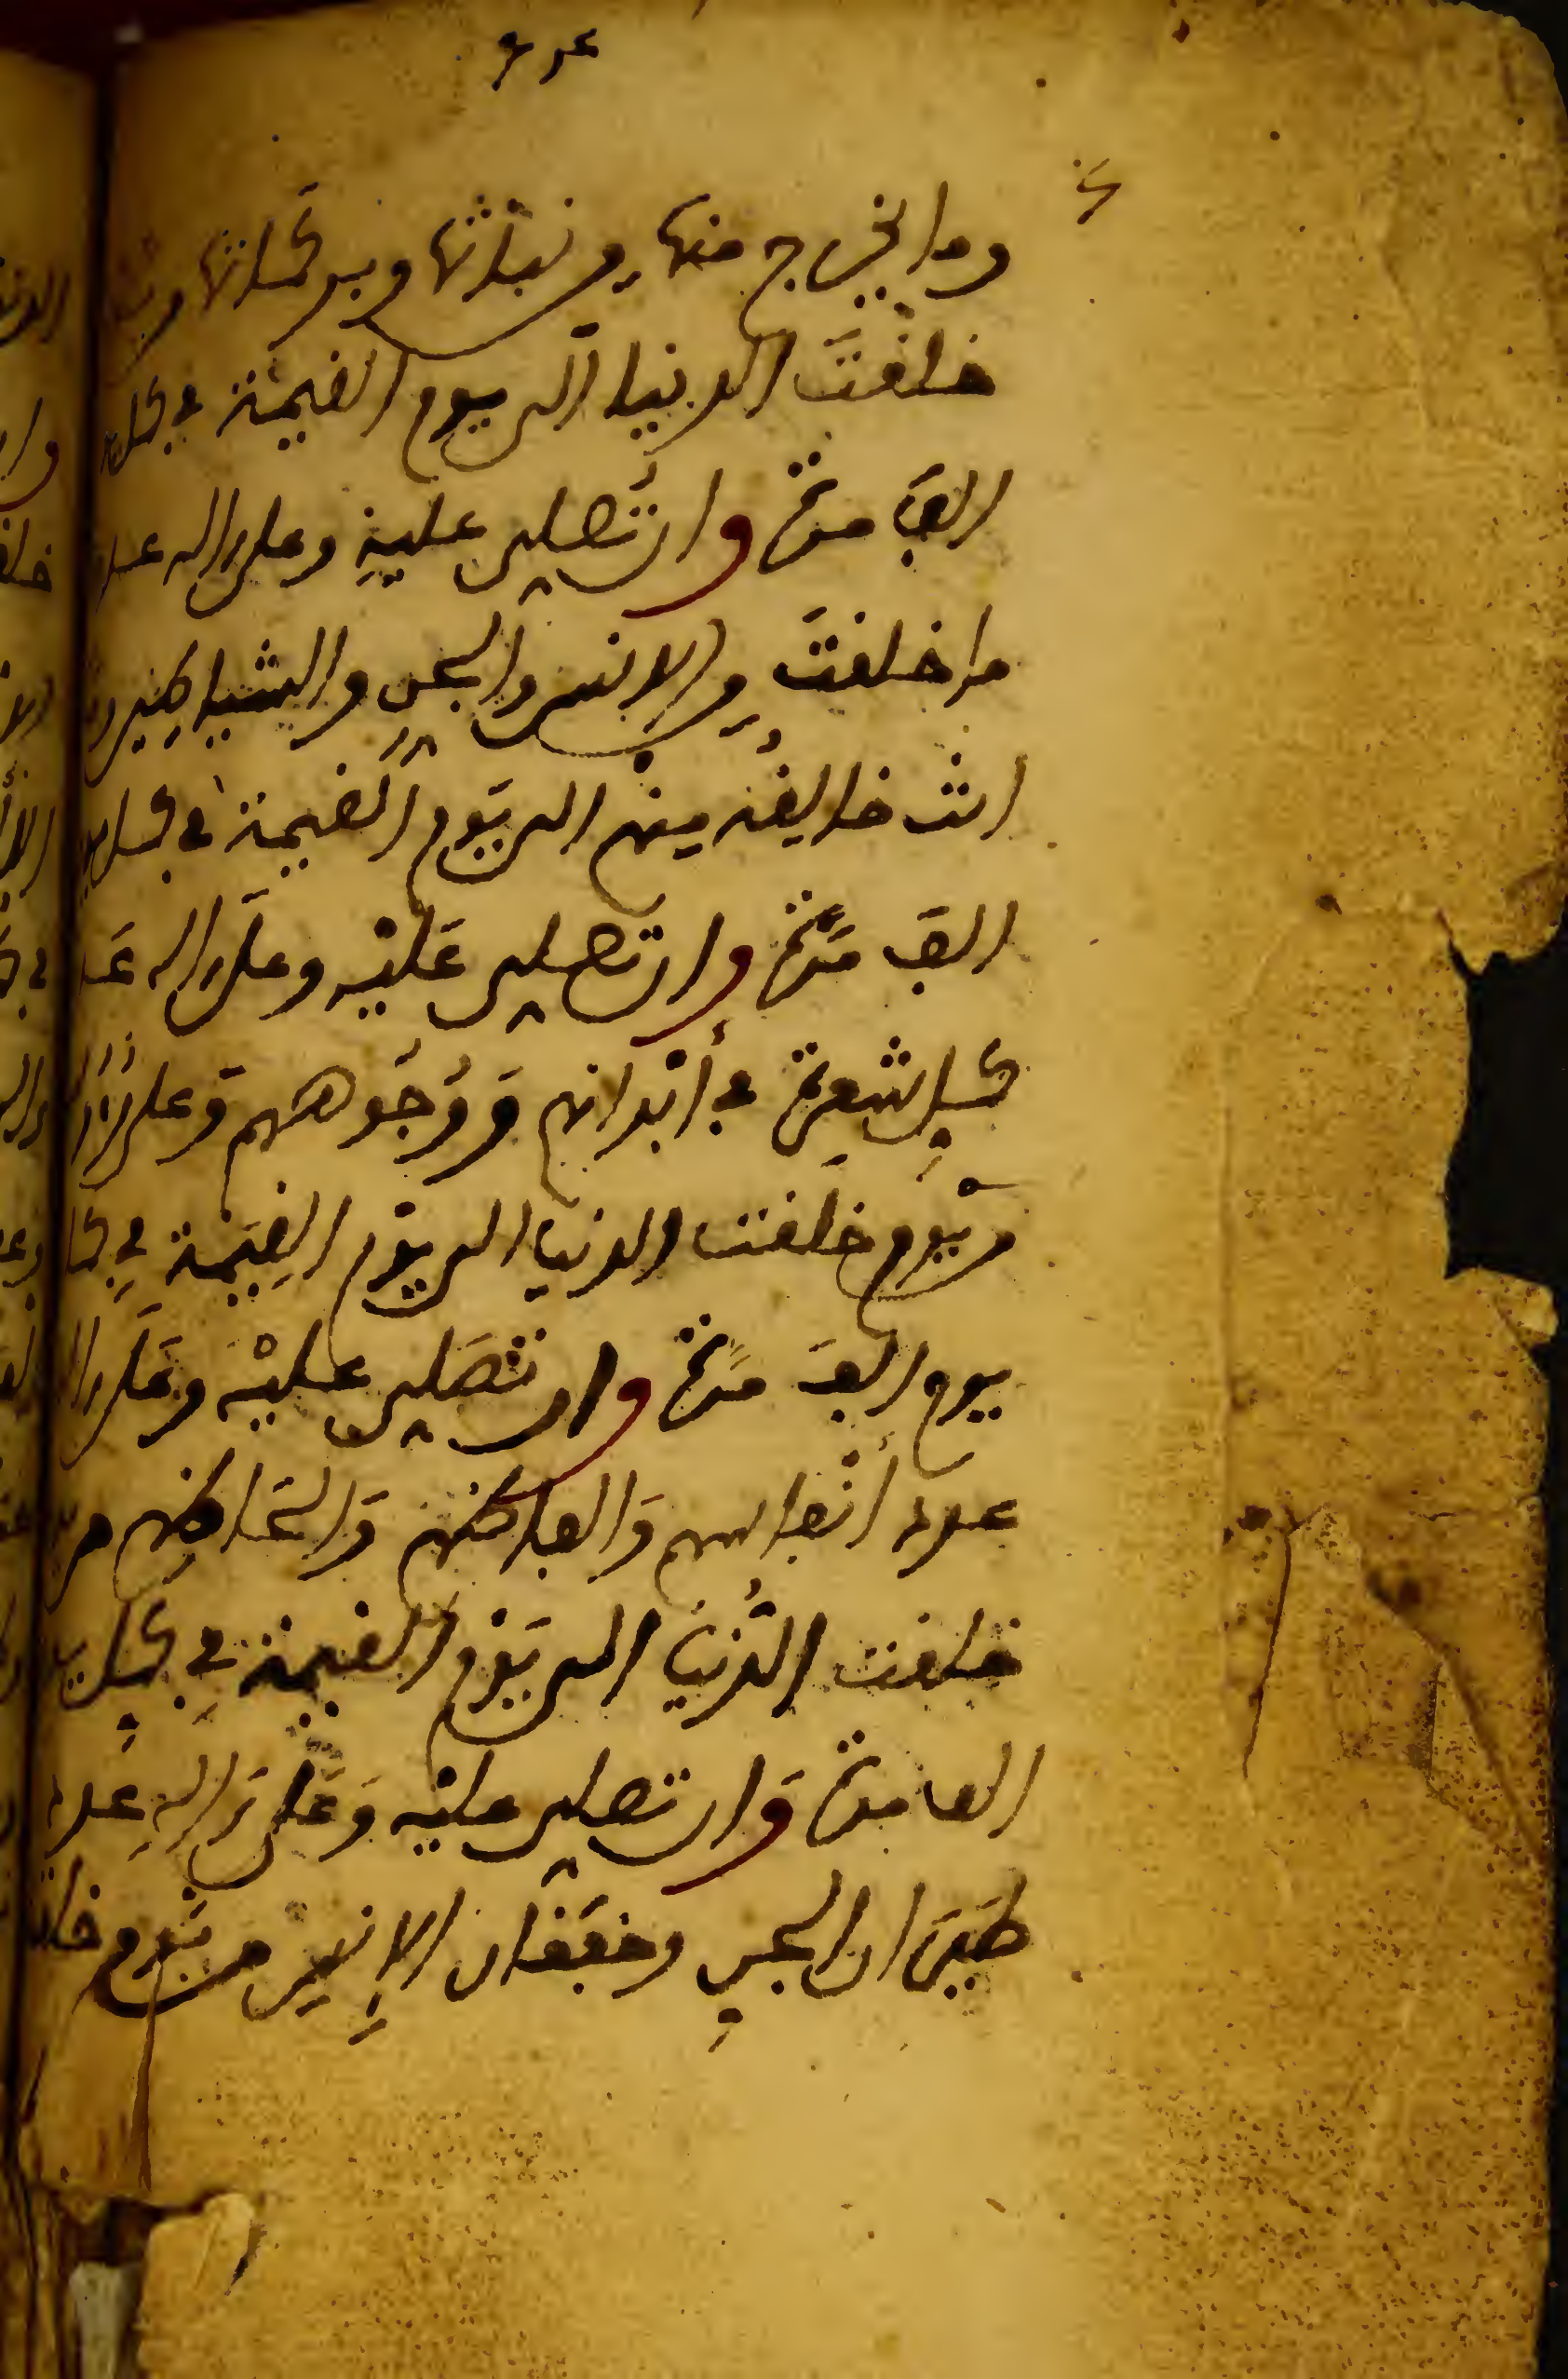 وما يخرج منها من نباتها وبركاتها من
خلقت الدنيا الى يوم القيمة في كل
الف مرة وان تصلي عليه وعلى اله عدد
ما خلقت من الانس والجن والشياطين وما
انت خالقه منهم الى يوم القيمة في كل يوم
الف مرة وان تصلي عليه وعلى اله عدد
كل شعرة في أبدانهم و وُجُوههم وعلى
من يوم خلقت الدنيا الى يوم القيمة في كل
يوم الف مرة وان تصلي عليه وعلى
عدد أنفاسهم والفاظهم والحاظهم من
خلقت الدُّنيا الى يوم القيمة في كل يوم
الف مرة وان تصلي عليه وعلى اله عدد
طيران الجن وخفقان الإنس من يوم خلقت